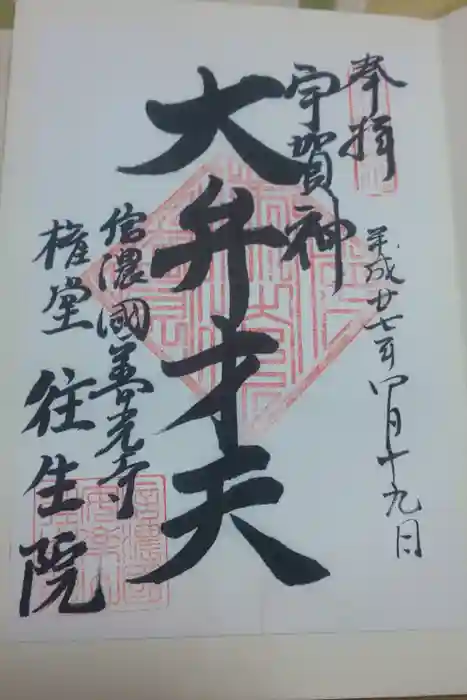 奉拝
平成廿七年四月十九日
宇賀神
大弁才天
信濃國善光寺
権堂
往生院